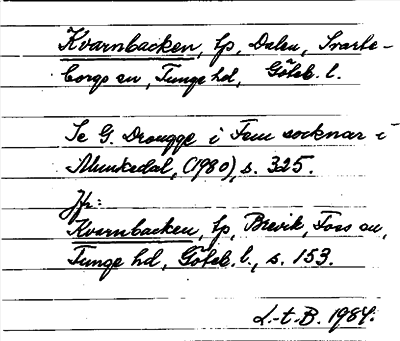 Kvarnbacken, lp, Dalen, Svarte-
borgs sn, Tunge hd, Göteb. l.
Se G. Drougge i Fem socknar i
Munkedal, (1980), s. 325.
Jfr:
Kvarnbacken, lp, Brevik, Foss sn,
Tunge hd, Göteb. l., s. 153.
L.-t.-B. 1984.